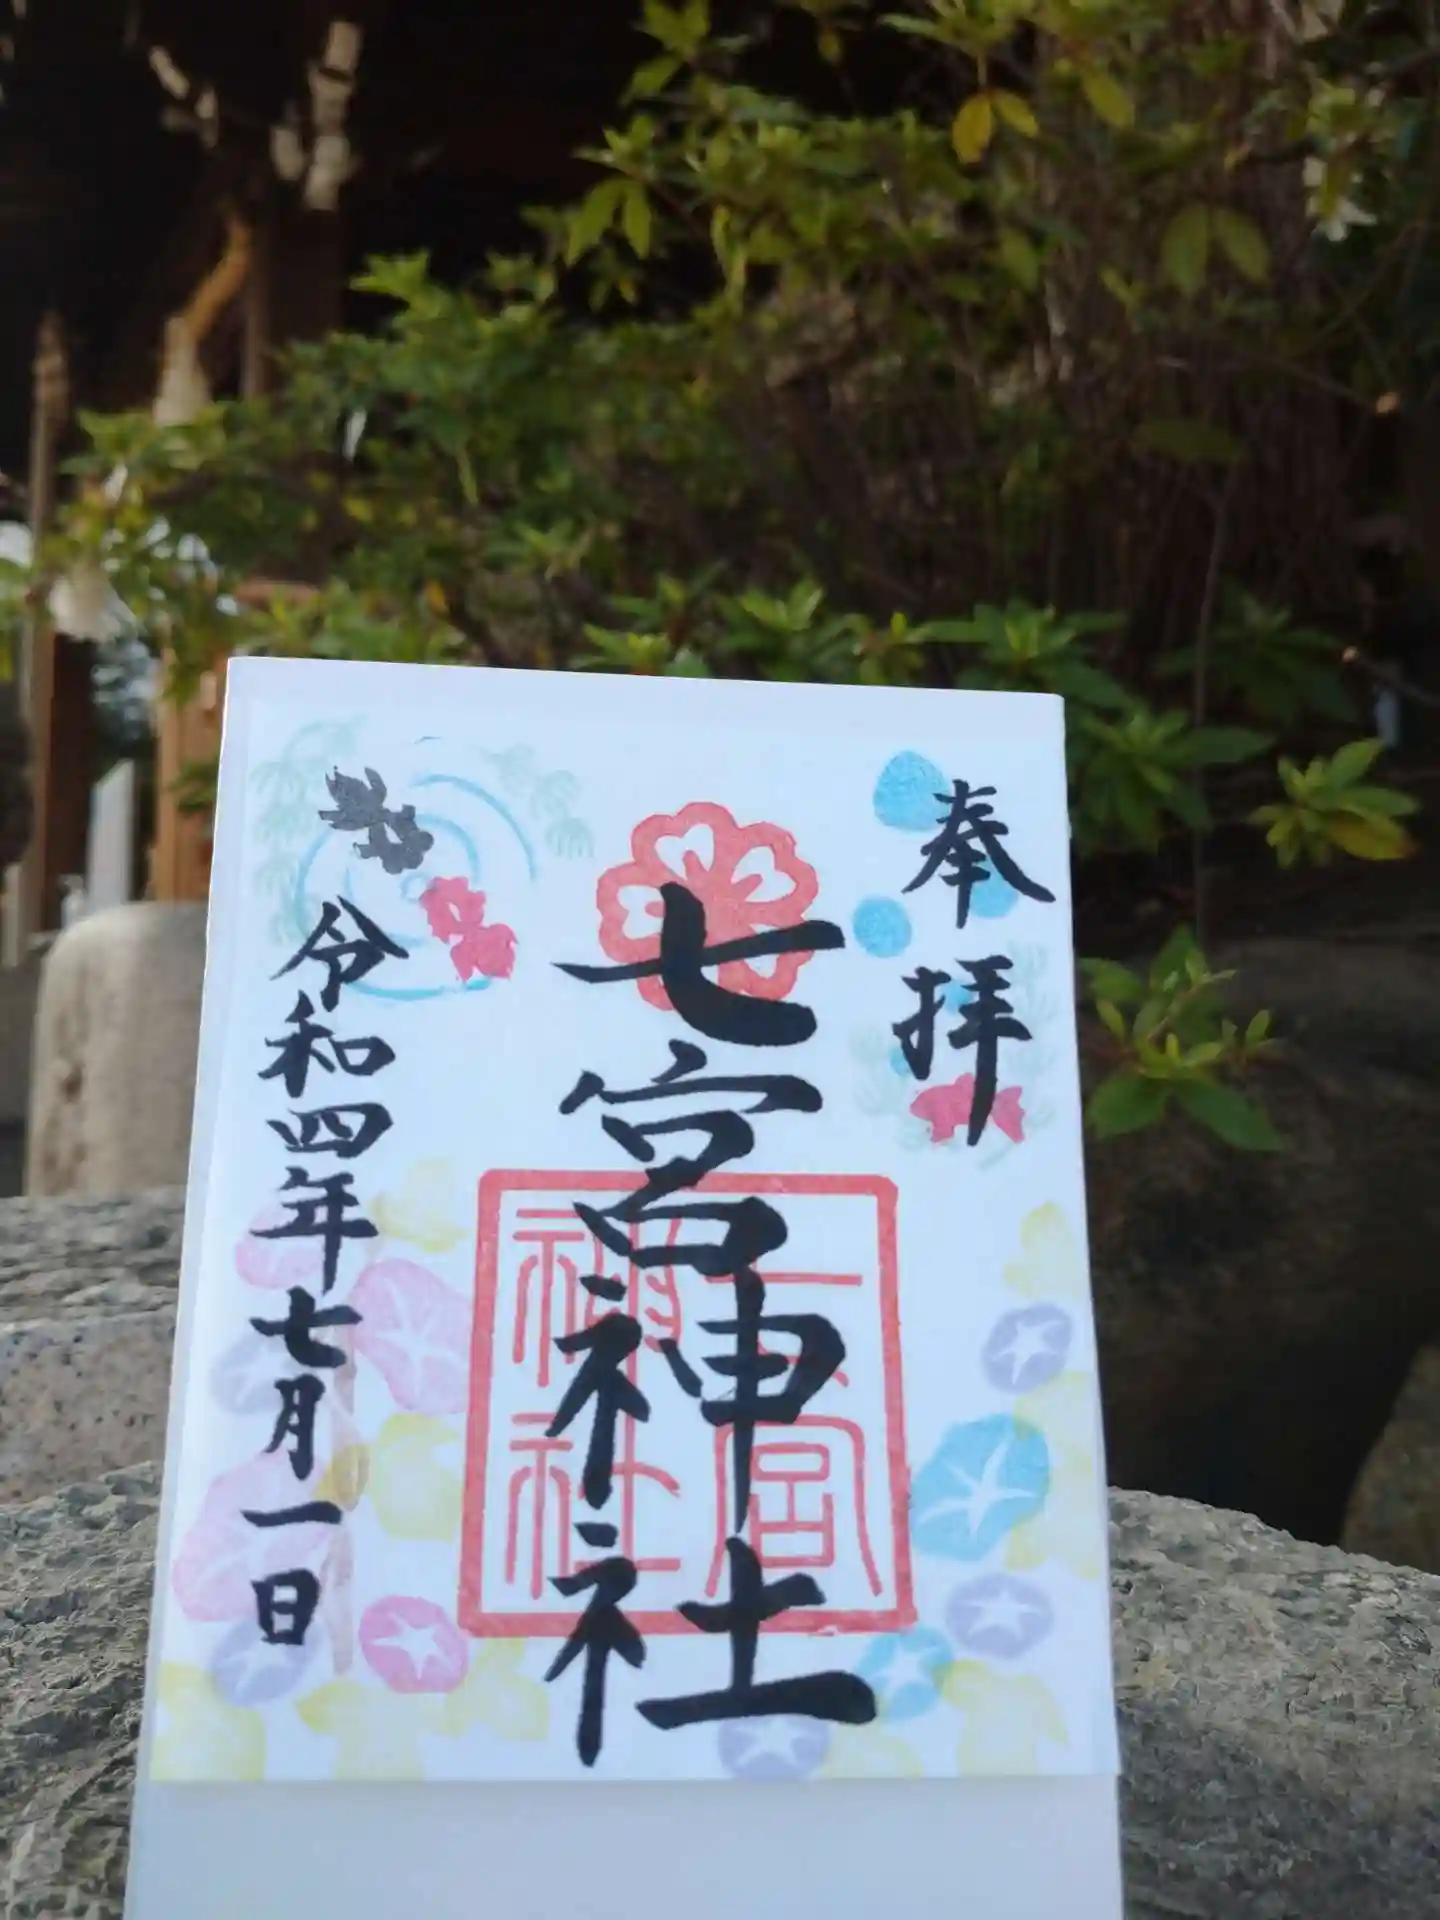 奉拝
七宮神社
七宮神社
令和四年七月一日